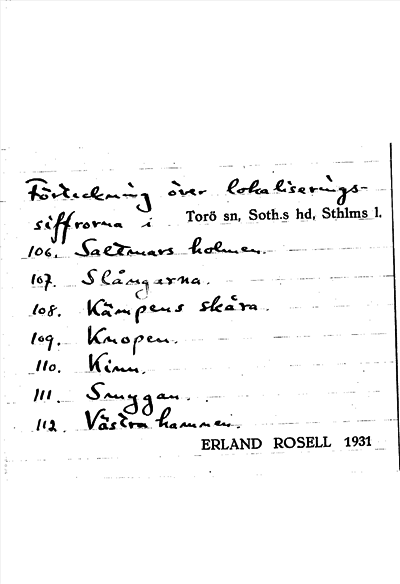 Förteckning över lokaliserings-
siffrorna i Torö sn, Soth.s hd, Sthlms l.
106. Saltmars holmen.
107. Slångarna.
108. Kämpens skåra.
109. Knopen.
110. Kinn.
111. Smuggan.
112. Västra hamnen.
ERLAND ROSELL 1931